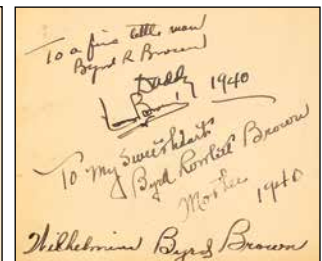 To a fine little man
Byrd R Brown
Daddy 1940
To My Sweetheart
Byrd Rowlett Brown
Mother
1940
Wilhelmina Byrd Brown